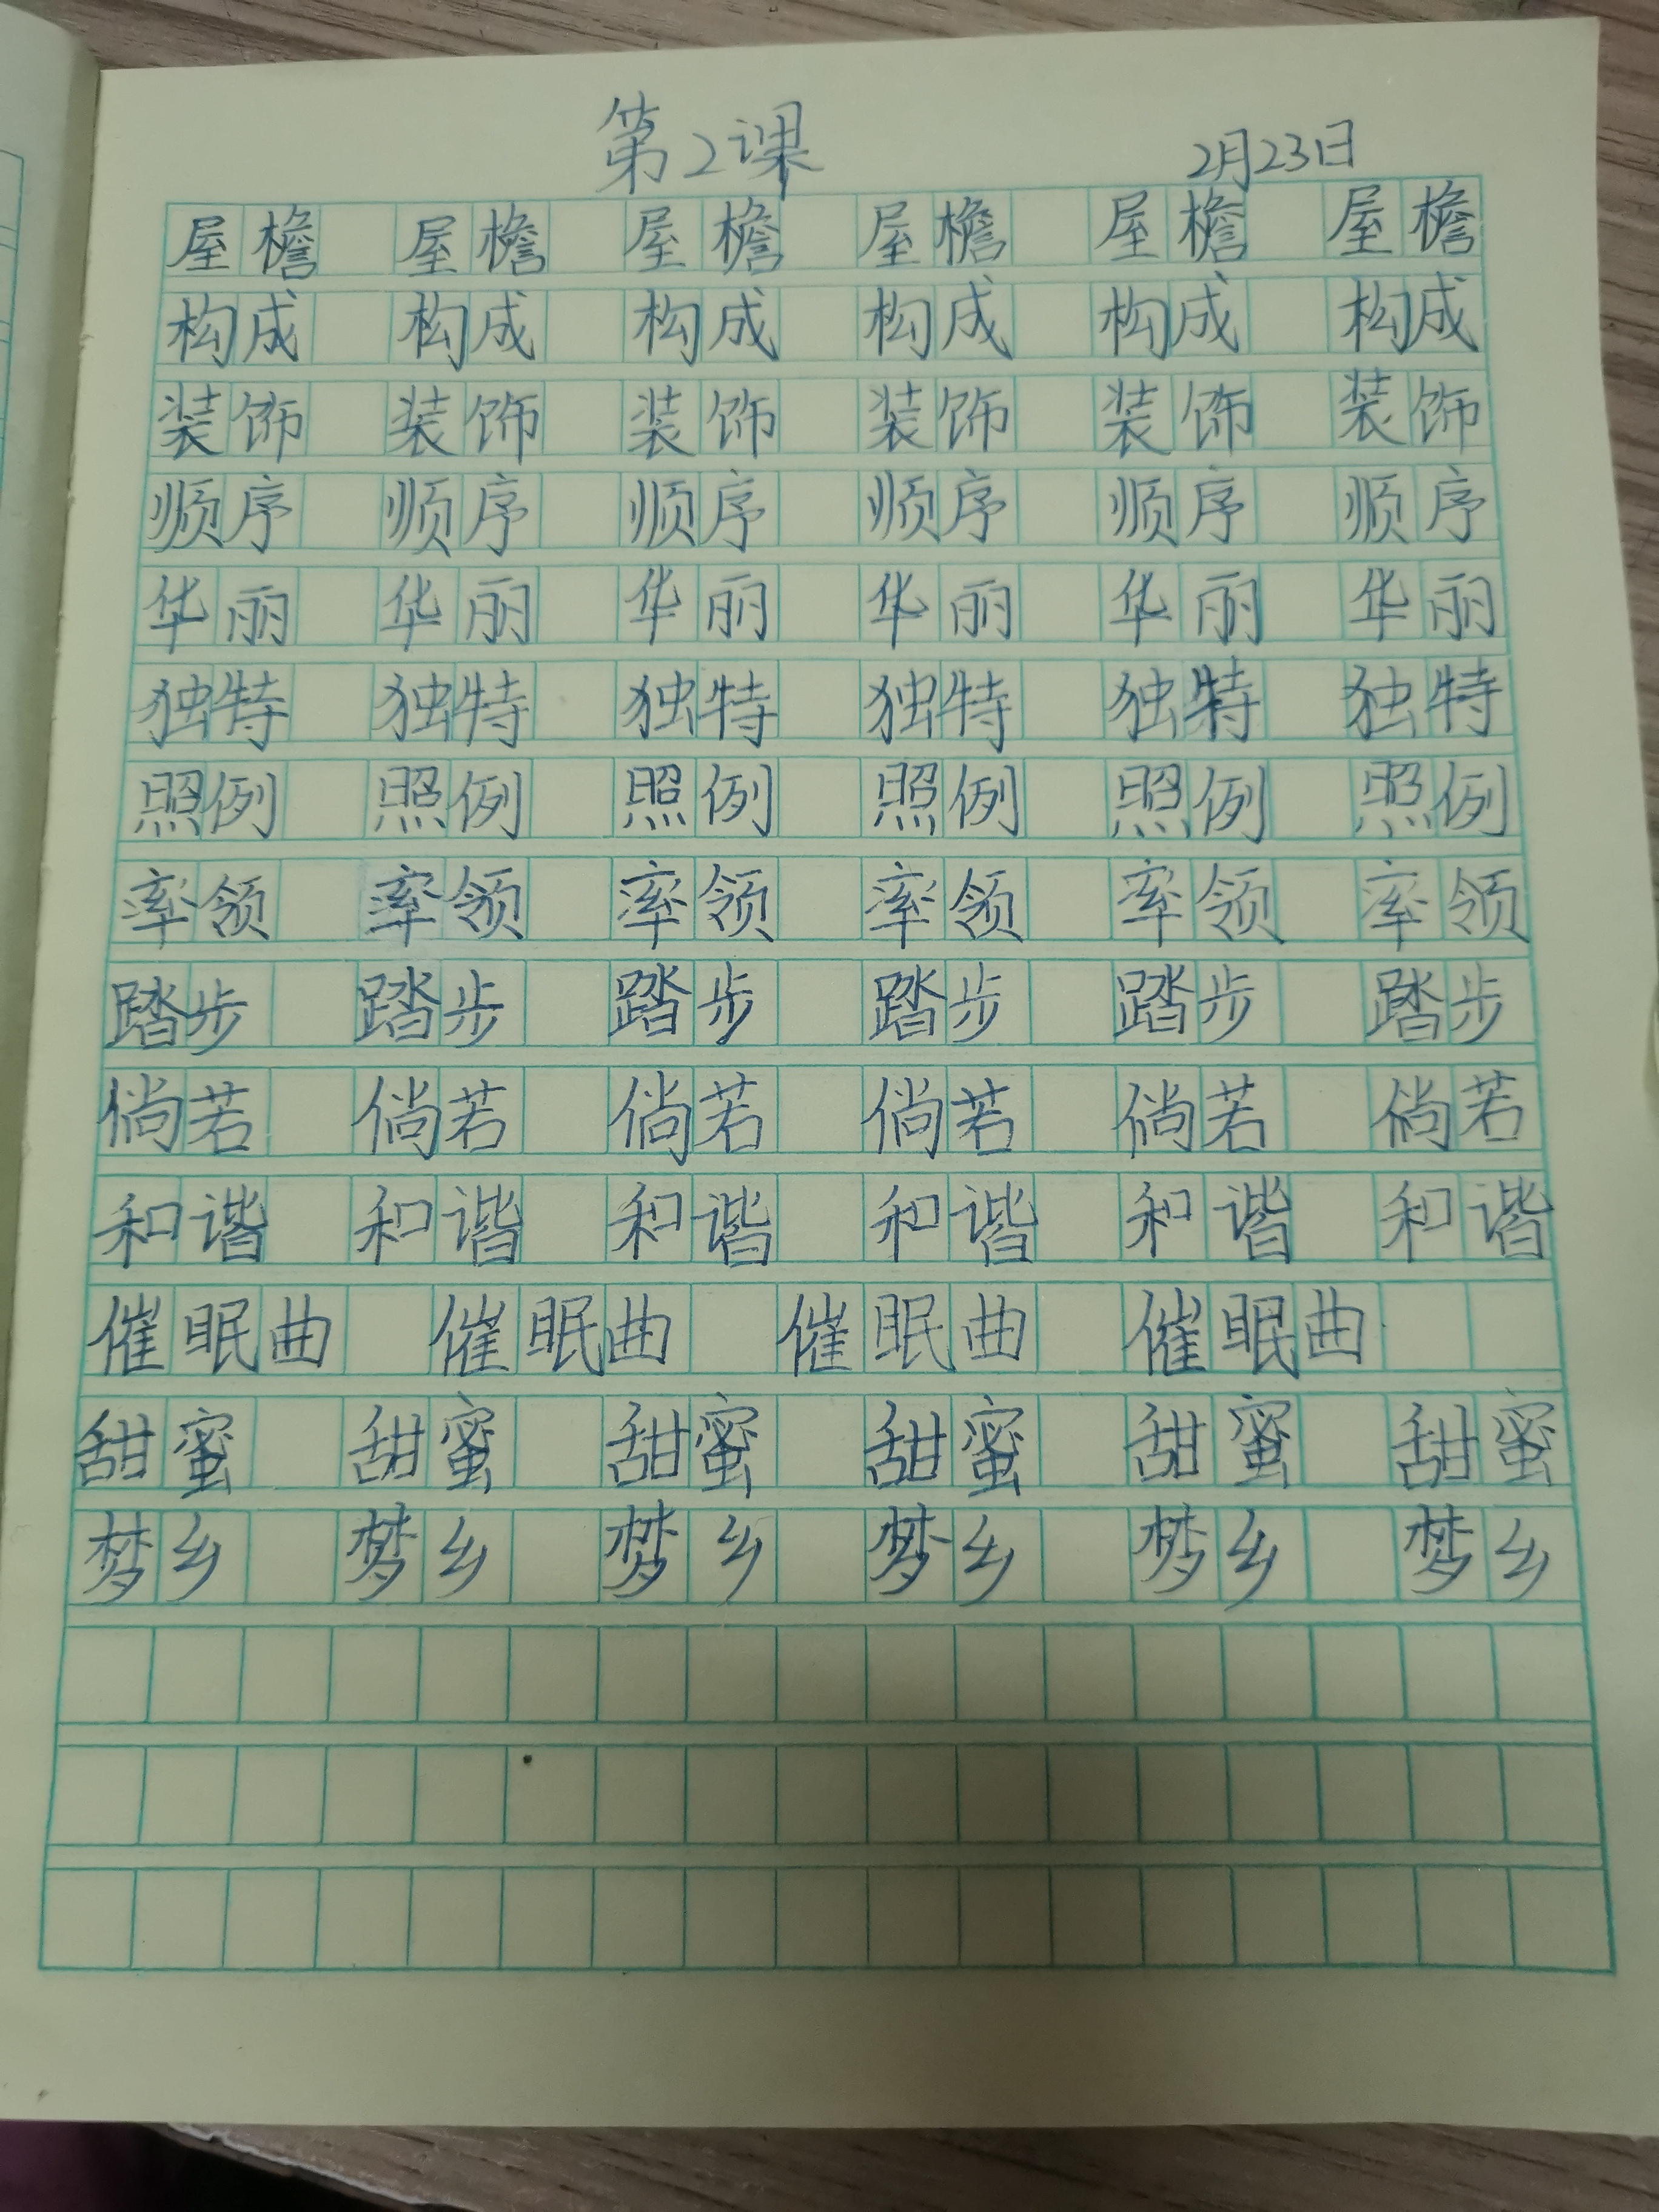 第2课 2月23日
屋檐 屋檐 屋檐 屋檐 屋檐 屋檐
构成 构成 构成 构成 构成 构成
装饰 装饰 装饰 装饰 装饰 装饰
顺序 顺序 顺序 顺序 顺序 顺序
华丽 华丽 华丽 华丽 华丽 华丽
独特 独特 独特 独特 独特 独特
照例 照例 照例 照例 照例 照例
率领 率领 率领 率领 率领 率领
踏步 踏步 踏步 踏步 踏步 踏步
倘若 倘若 倘若 倘若 倘若 倘若
和谐 和谐 和谐 和谐 和谐 和谐
催眠曲 催眠曲 催眠曲 催眠曲
甜蜜 甜蜜 甜蜜 甜蜜 甜蜜 甜蜜
梦乡 梦乡 梦乡 梦乡 梦乡 梦乡